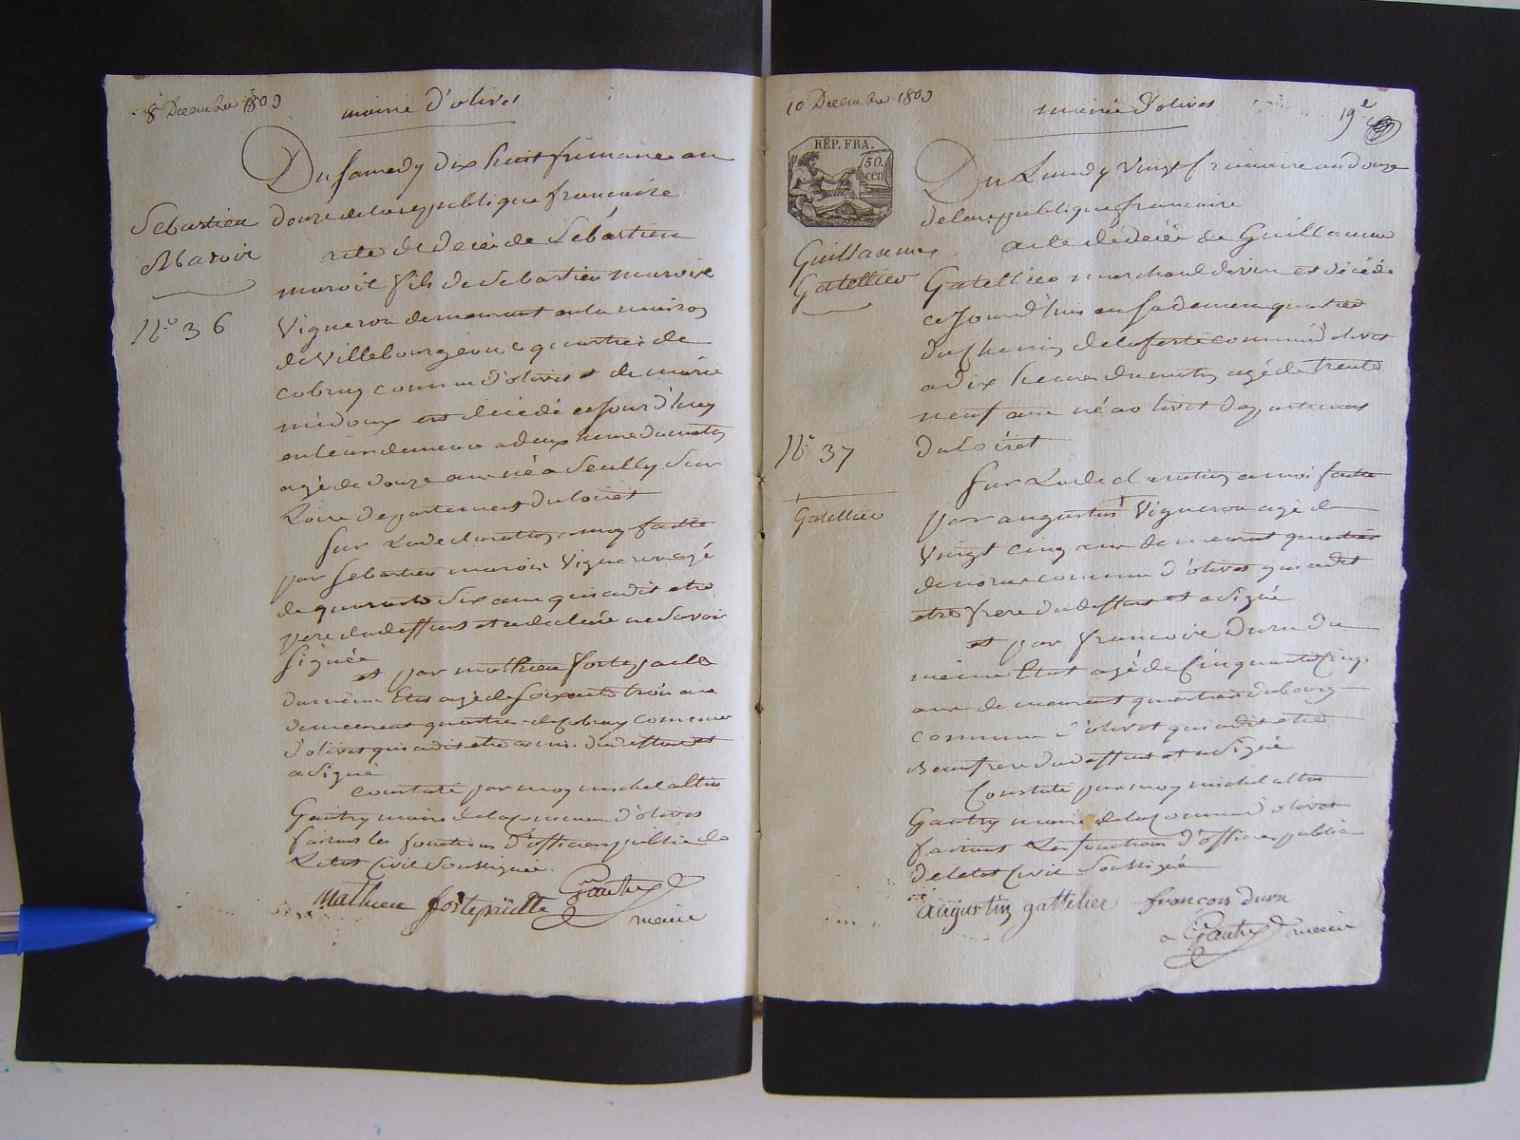 8 Decembre 1803
mairie d'olivet
Du samedy dix huit frimaire an
douze de la republique francaise
Sebastien
Maroir
acte de décéé de Sébastien
maroir fils de Sebastien maroir
N.o 36
Vigneron demeurant en la maison
de Villebourgeon quartier de
cobray commune d'olivet et de marie
midoux est décédé cejourd'huy
en leur demeure a deux heure du matin
agé de douze ans né a Seully Sur
Loire departement du loiret
Sur La declaration a moy faitte
par Sebastien maroir Vigneron agé
de quarante six ans qui a dit etre
pere du deffunt et a declaré ne Savoir
Signée
et par mathieu fortepaulle
du même Etat agé de soixante trois ans
demeurant quartier de cobray commune
d'olivet qui a dit etre ami du deffunt et
a Signé
Constaté par moy michel altin
Gautry maire de la commune d'olivet
faisant les fonctions d'officier public de
L'etat Civil Soussigné.
Mathieu fortepaulle Gautry
maire
10 Decembre 1803
mairie d'olivet
19e
RÉP. FRA.
50.
CEN
Du Lundy Vingt frimaire an douze
de la republique francaise
Guillaume
Gatellier
acte de décéé de Guillaume
Gatellier marchand de vin est décédé
ce Jourd'hui en sa demeure quartier
du chemin de la ferté commune d'olivet
a dix heures du matin agé de trente
neuf ans né a olivet departement
N.o 37
du Loiret
Gatellier
Sur La declaration a moi faitte
par augustin Vigneron agé de
Vingt cinq ans demeurant quartier
de commune d'olivet qui a dit
etre frere du deffunt et a signé
et par francois Duru du
meme Etat agé de Cinquante Cinq
ans demeurant quartier du bourg
commune d'olivet qui a dit etre
Beaufrere du deffunt et a signé
Constaté par moy michel altin
Gautry maire de la Commune d'olivet
faisant Les fonctions d'officier public
de l'etat Civil Soussigné
augustin gattelier francois duru
Gautry maire